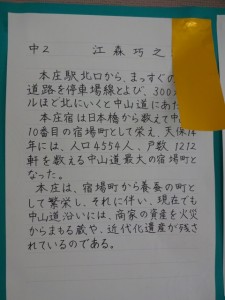 中2 江森巧之
本庄駅北口から、まっすぐの
道路を停車場線とよび、300
ルほど北にいくと中山道にあた
本庄宿は日本橋から数えて中
10番目の宿場町として栄え、天保14
年には、人口4554人、戸数1212
軒を数える中山道最大の宿場町と
なった。
本庄は、宿場町から養蚕の町とし
て繁栄し、それに伴い、現在でも
中山道沿いには、商家の資産を火災
からまもる蔵や、近代化遺産が残さ
れているのである。